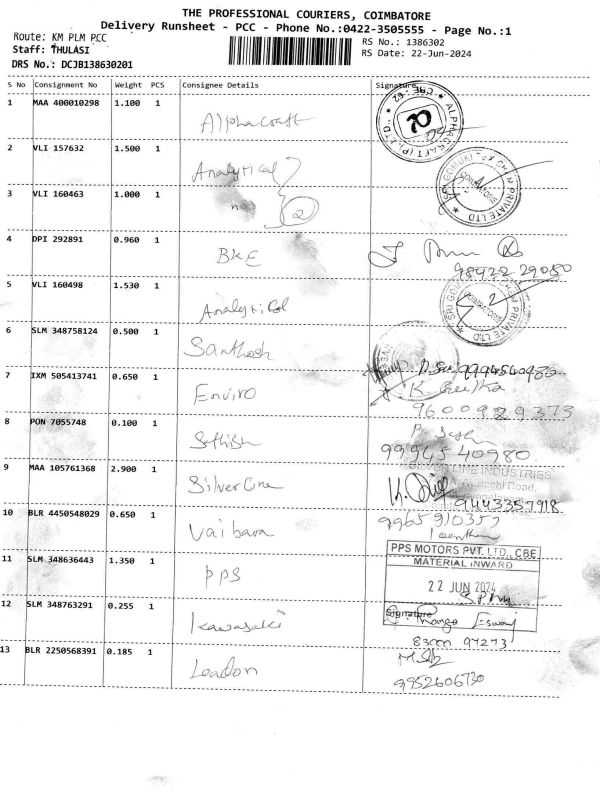 THE PROFESSIONAL COURIERS, COIMBATORE
Delivery Runsheet - PCC - Phone No.:0422-3505555 - Page No.:1
Route: KM PLM PCC
Staff: THULASI
DRS No.: DCJB138630201
RS No.: 1386302
RS Date: 22-Jun-2024
S No Consignment No Weight PCS Consignee Details Signature
1 MAA 400010298 1.100 1 Alphacraft
ALPHACRAFT (P) LTD CBE-62
2 VLI 157632 1.500 1 Analytical
3 VLI 160463 1.000 1
2
PRIVATE LTD COIMBATORE
4 DPI 292891 0.960 1 BKE
98422 29080
5 VLI 160498 1.530 1 Analytical
PRIVATE LTD COIMBATORE
6 SLM 348758124 0.500 1 Santhosh
9994540980
7 IXM 505413741 0.650 1 Enviro
9600929373
8 PON 7055748 0.100 1 Sathish
9994540980
9 MAA 105761368 2.900 1 Silver Line
SILVER LINE INDUSTRIES
Road,
9443357918
10 BLR 4450548029 0.650 1 Vaibava
9965910357
11 SLM 348636443 1.350 1 PPS
PPS MOTORS PVT. LTD., CBE
MATERIAL INWARD
22 JUN 2024
Signature
12 SLM 348763291 0.255 1 Kawasaki
83000 97273
13 BLR 2250568391 0.185 1 Leadon
9952606730